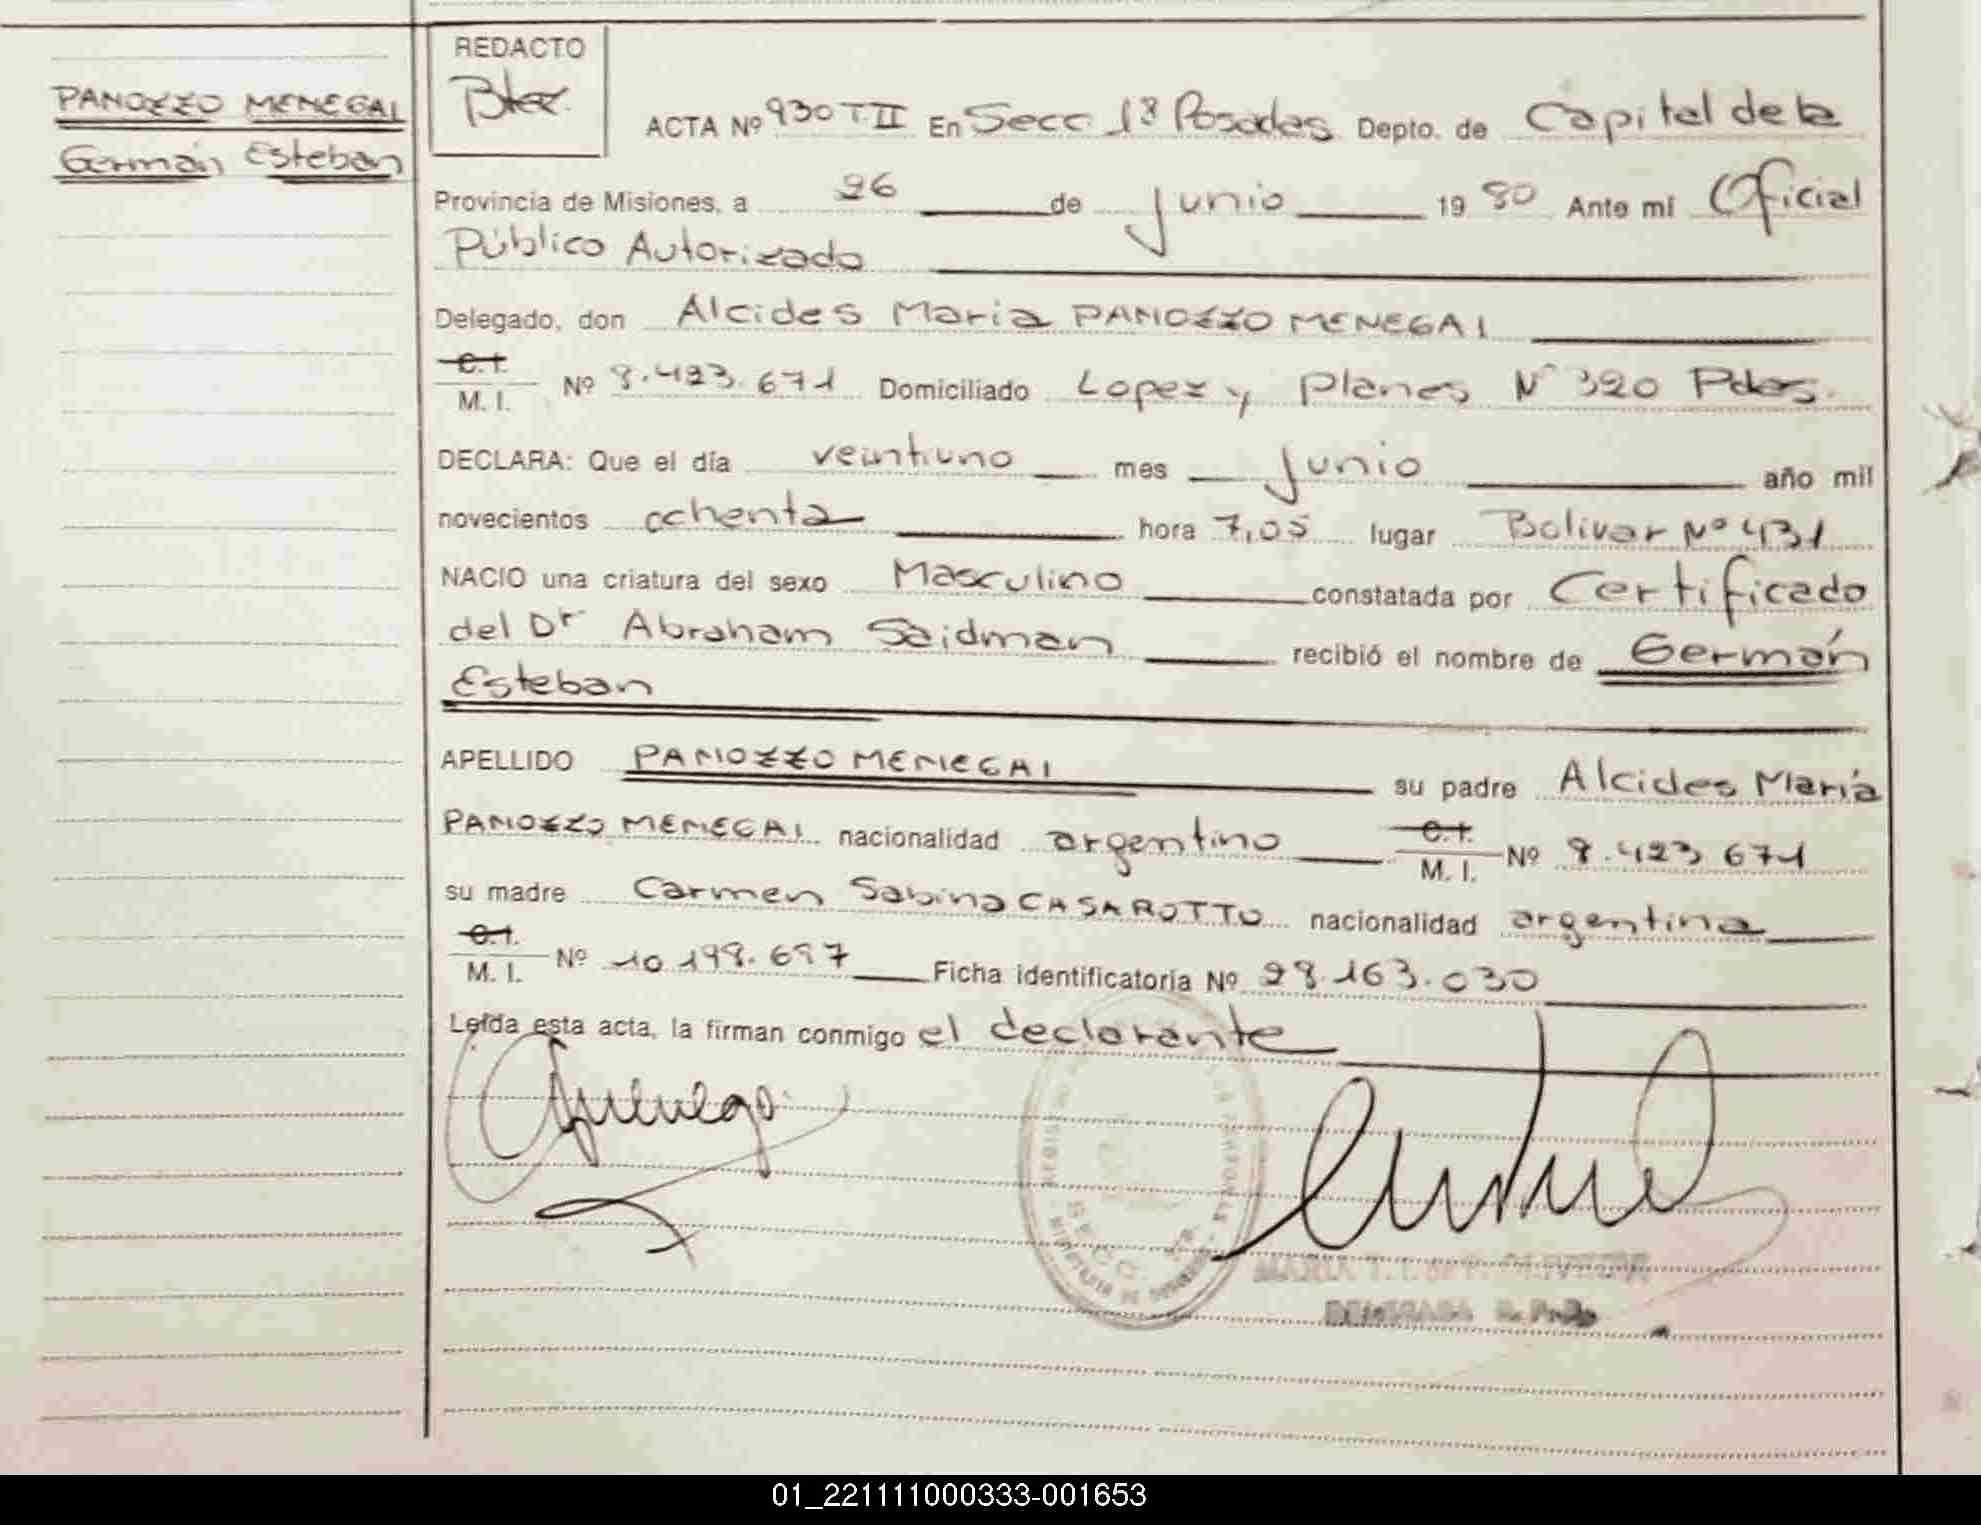 PANOZZO MENEGAI
Germán Esteban
REDACTO
ACTA Nº 930 T II En Secc 1ª Posadas Depto. de Capital de la
Provincia de Misiones, a 26 de Junio 19 80 Ante mí Oficial
Público Autorizado
Delegado, don Alcides Maria PANOZZO MENEGAI
C.I.
M. I. Nº 8.423.671 Domiciliado Lopez y Planes Nº 320 Pdas.
DECLARA: Que el día veintiuno mes Junio año mil
novecientos ochenta hora 7,05 lugar Bolivar Nº 431
NACIO una criatura del sexo Masculino constatada por Certificado
del Dr Abraham Saidman recibió el nombre de Germán
Esteban
APELLIDO PANOZZO MENEGAI su padre Alcides María
PANOZZO MENEGAI nacionalidad argentino C.I. M. I. Nº 8.423 671
su madre Carmen Sabina CASAROTTO nacionalidad argentina
C.I.
M. I. Nº 10.198.697 Ficha identificatoria Nº 28.163.030
Leída esta acta, la firman conmigo el declarante
01_221111000333-001653